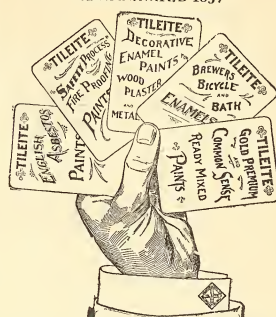 1857
TILEITE
ENGLISH
ASBESTOS
PAINTS
TILEITE
PROCESS
FIRE PROOFING
PAINTS
TILEITE
DECORATIVE
ENAMEL
PAINTS
WOOD
PLASTER
AND
METAL
TILEITE
BREWERS
BICYCLE
AND
BATH
ENAMELS
TILEITE
GOLD PREMIUM
AND
COMMON SENSE
READY MIXED
PAINTS